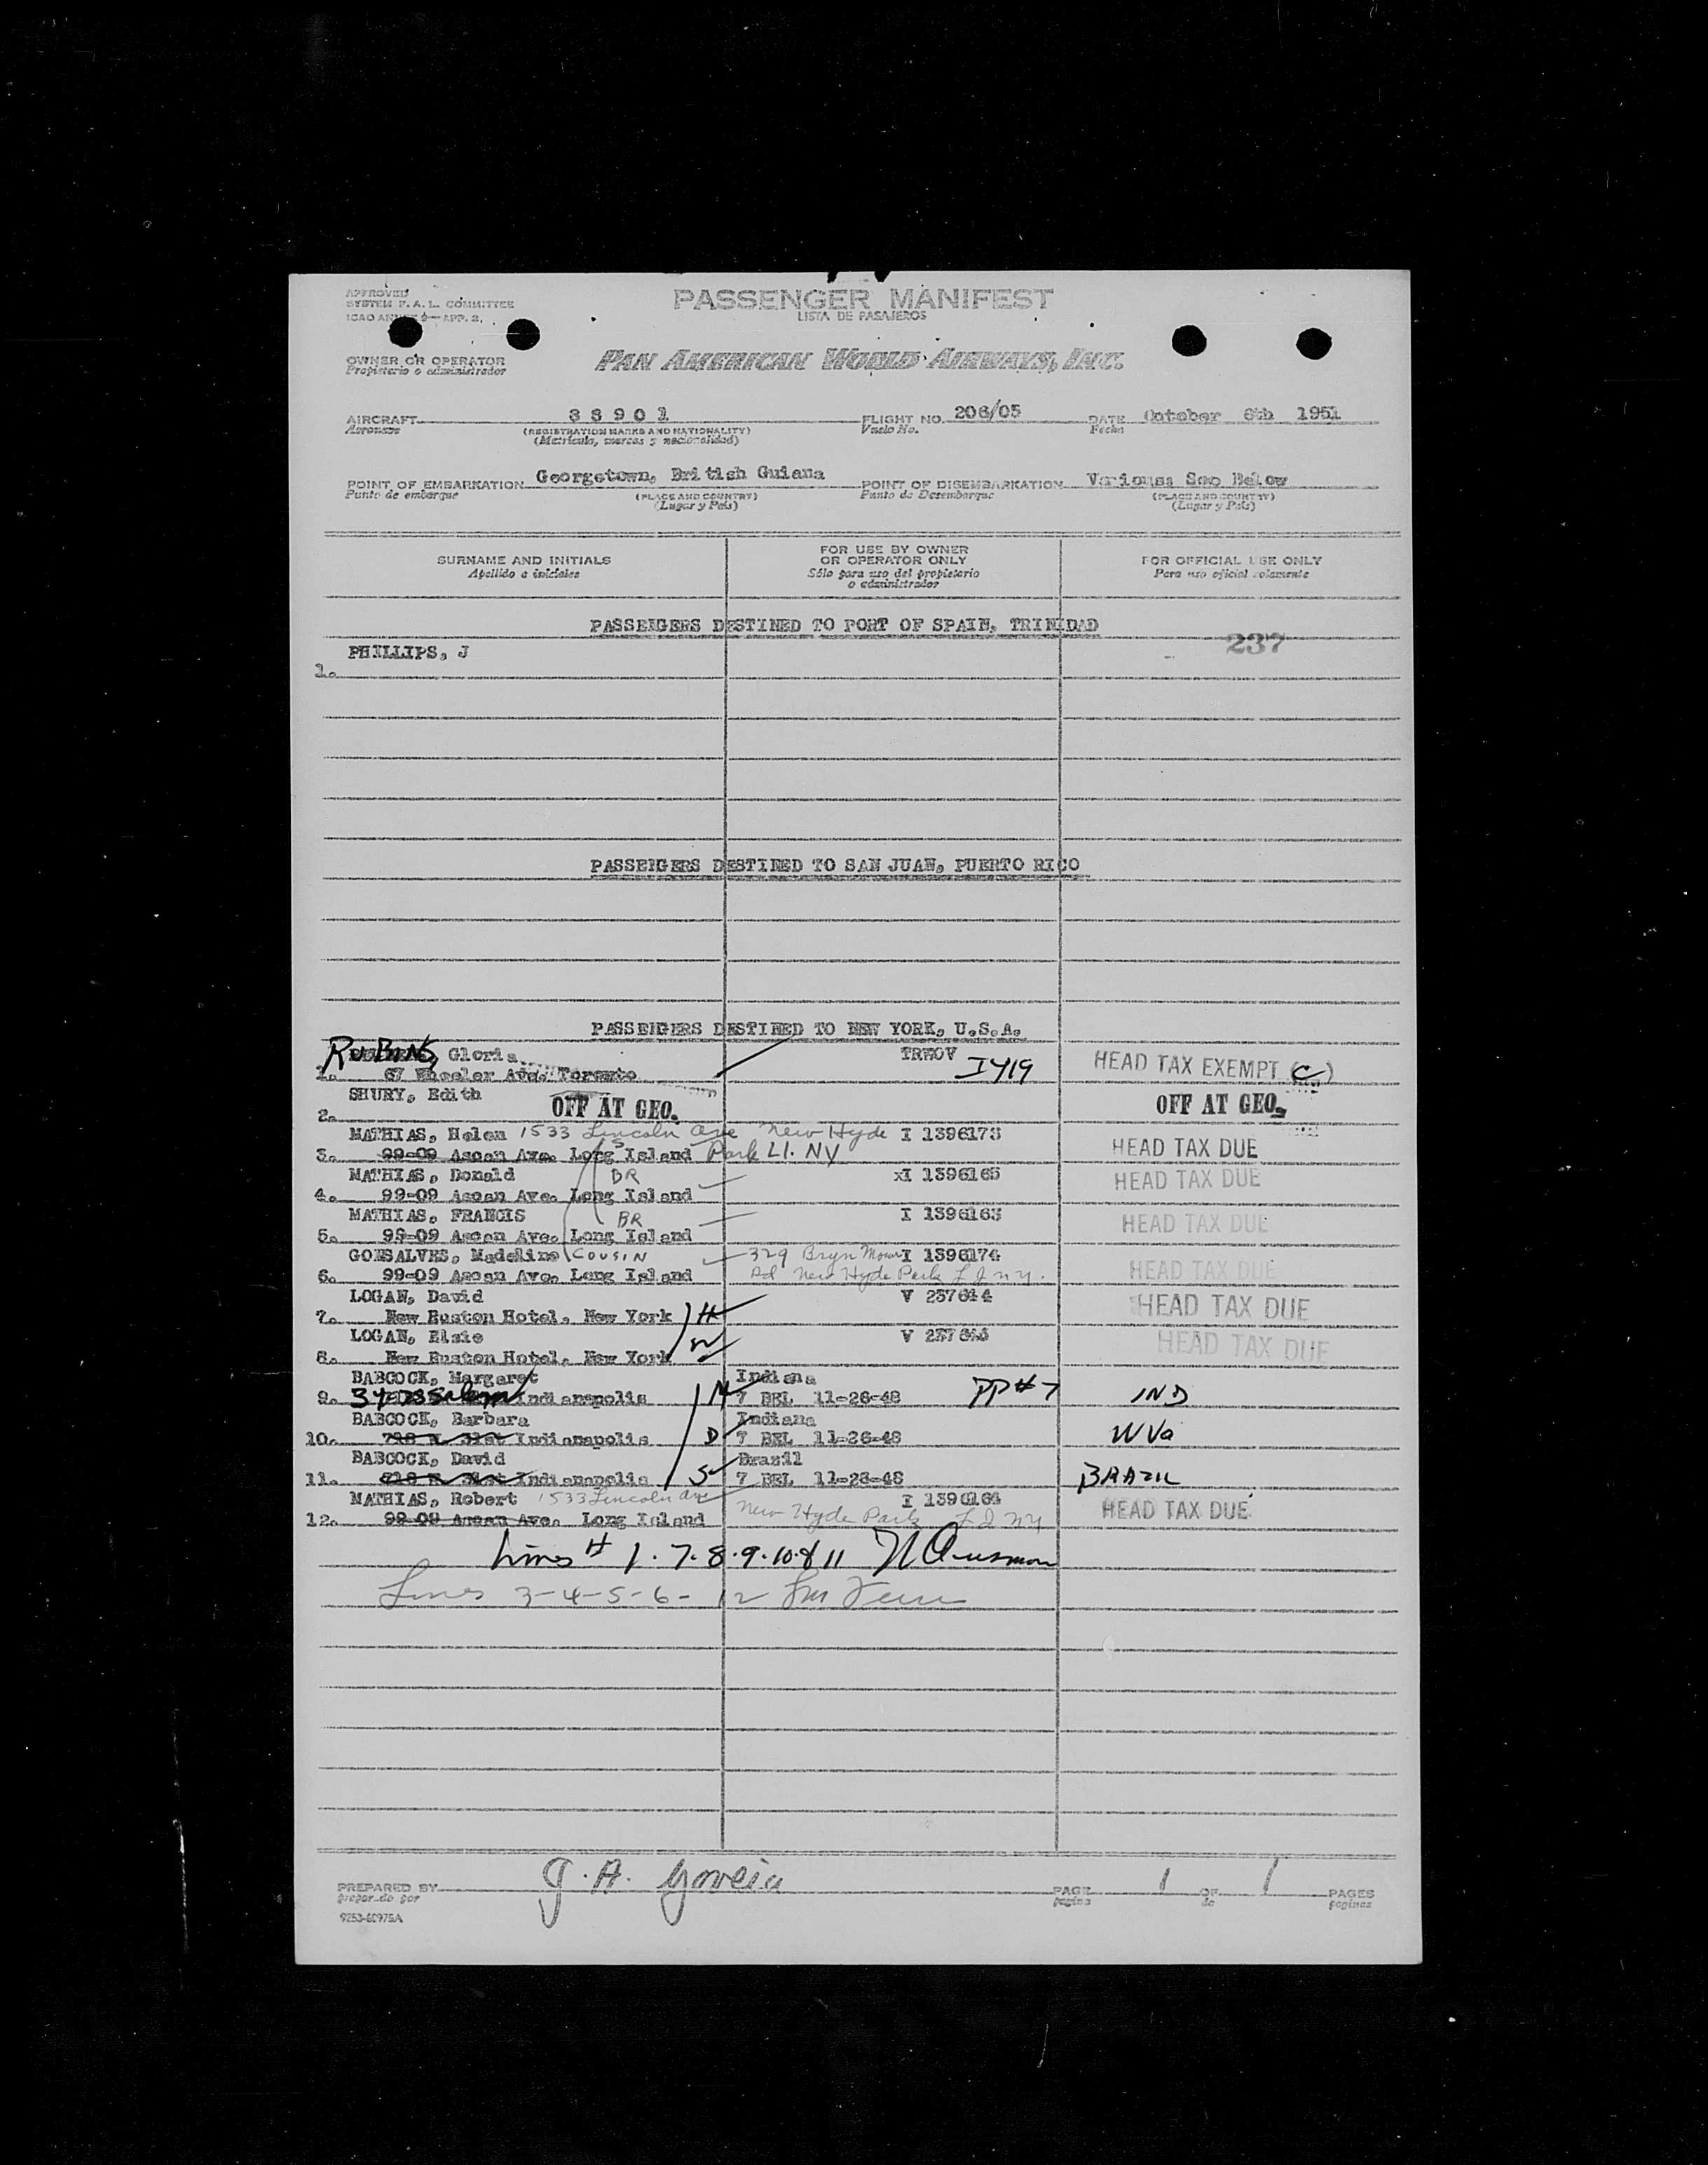 APPROVED
SYSTEM F. A. L. COMMITTEE
ICAO ANNEX 9—APP. 2,
PASSENGER MANIFEST
LISTA DE PASAJEROS
OWNER OR OPERATOR
Propietario o administrador
PAN AMERICAN WORLD AIRWAYS, INC.
AIRCRAFT 88901 FLIGHT NO. 206/05 DATE October 6th 1951
Aeronave (REGISTRATION MARKS AND NATIONALITY) Vuelo No. Fecha
(Matrícula, marcas y nacionalidad)
POINT OF EMBARKATION Georgetown, British Guiana POINT OF DISEMBARKATION Various: See Below
Punto de embarque (PLACE AND COUNTRY) Punto de Desembarque (PLACE AND COUNTRY)
(Lugar y País) (Lugar y País)
SURNAME AND INITIALS FOR USE BY OWNER OR OPERATOR ONLY FOR OFFICIAL USE ONLY
Apellido e iniciales Sólo para uso del propietario o administrador Para uso oficial solamente
PASSENGERS DESTINED TO PORT OF SPAIN, TRINIDAD
237
PHILLIPS, J
1.
PASSENGERS DESTINED TO SAN JUAN, PUERTO RICO
PASSENGERS DESTINED TO NEW YORK, U.S.A.
RUBINS, Gloria TRWOV I 419 HEAD TAX EXEMPT (C)
1. 67 Wheeler Ave. Toronto
SHURY, Edith OFF AT GEO. OFF AT GEO.
2.
MATHIAS, Helen 1533 Lincoln Ave New Hyde I 1396173
3. 99-09 Ascan Ave. Long Island Park LI. NY HEAD TAX DUE
MATHIAS, Donald BR xI 1396165 HEAD TAX DUE
4. 99-09 Ascan Ave. Long Island
MATHIAS, FRANCIS BR I 1396163 HEAD TAX DUE
5. 99-09 Ascan Ave. Long Island
GONSALVES, Madeline COUSIN 329 Bryn Mawr I 1396174
6. 99-09 Ascan Ave. Long Island Rd New Hyde Park L I N Y. HEAD TAX DUE
LOGAN, David V 237644 HEAD TAX DUE
7. New Euston Hotel, New York H
LOGAN, Elsie V HEAD TAX DUE
8. New Euston Hotel, New York W
BABCOCK, Margaret Indiana
9. Indianapolis M 7 BEL 11-26-48 PP#7 IND
BABCOCK, Barbara Indiana
10. Indianapolis D 7 BEL 11-26-48 W Va
BABCOCK, David Brazil
11. Indianapolis S 7 BEL 11-26-48 BRAZIL
MATHIAS, Robert 1533 Lincoln Ave I 1396164
12. 99-09 Ascan Ave. Long Island New Hyde Park L I N Y HEAD TAX DUE
Lines # 1. 7. 8. 9. 10. & 11
Lines 3-4-5-6-12
PREPARED BY J. A. Goveia PAGE 1 OF 1 PAGES
preparado por página de páginas
9253-60975A